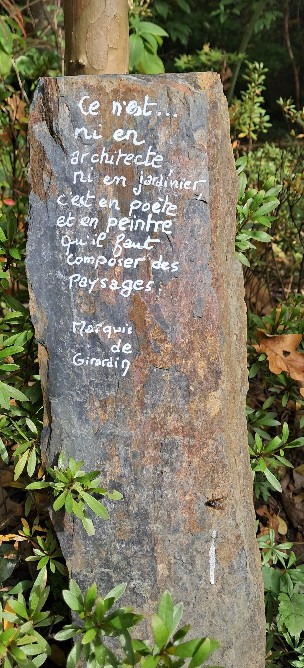 Ce n'est...
ni en
architecte
ni en jardinier
c'est en poète
et en peintre
qu'il faut
composer des
paysages.
Marquis
de
Girardin